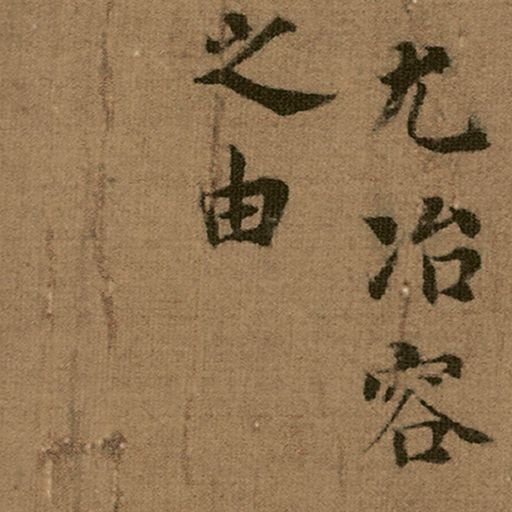 尤冶容
之由